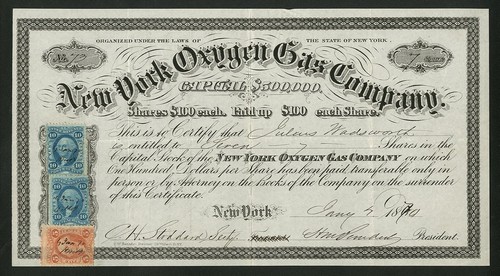 ORGANIZED UNDER THE LAWS OF THE STATE OF NEW YORK.
No. 72 7 Shares
New York Oxygen Gas Company.
CAPITAL $500,000.
Shares $100 each. Paid up $100 each Share.
This is to Certify that Julius Wadsworth
is entitled to Seven 7 Shares in the
Capital Stock of the NEW YORK OXYGEN GAS COMPANY on which
One Hundred Dollars per Share has been paid, transferable only in
person or by Attorney on the Books of the Company on the surrender
of this Certificate.
New York Jany
C. H. Stoddard Secty. President.
10 10
10 10